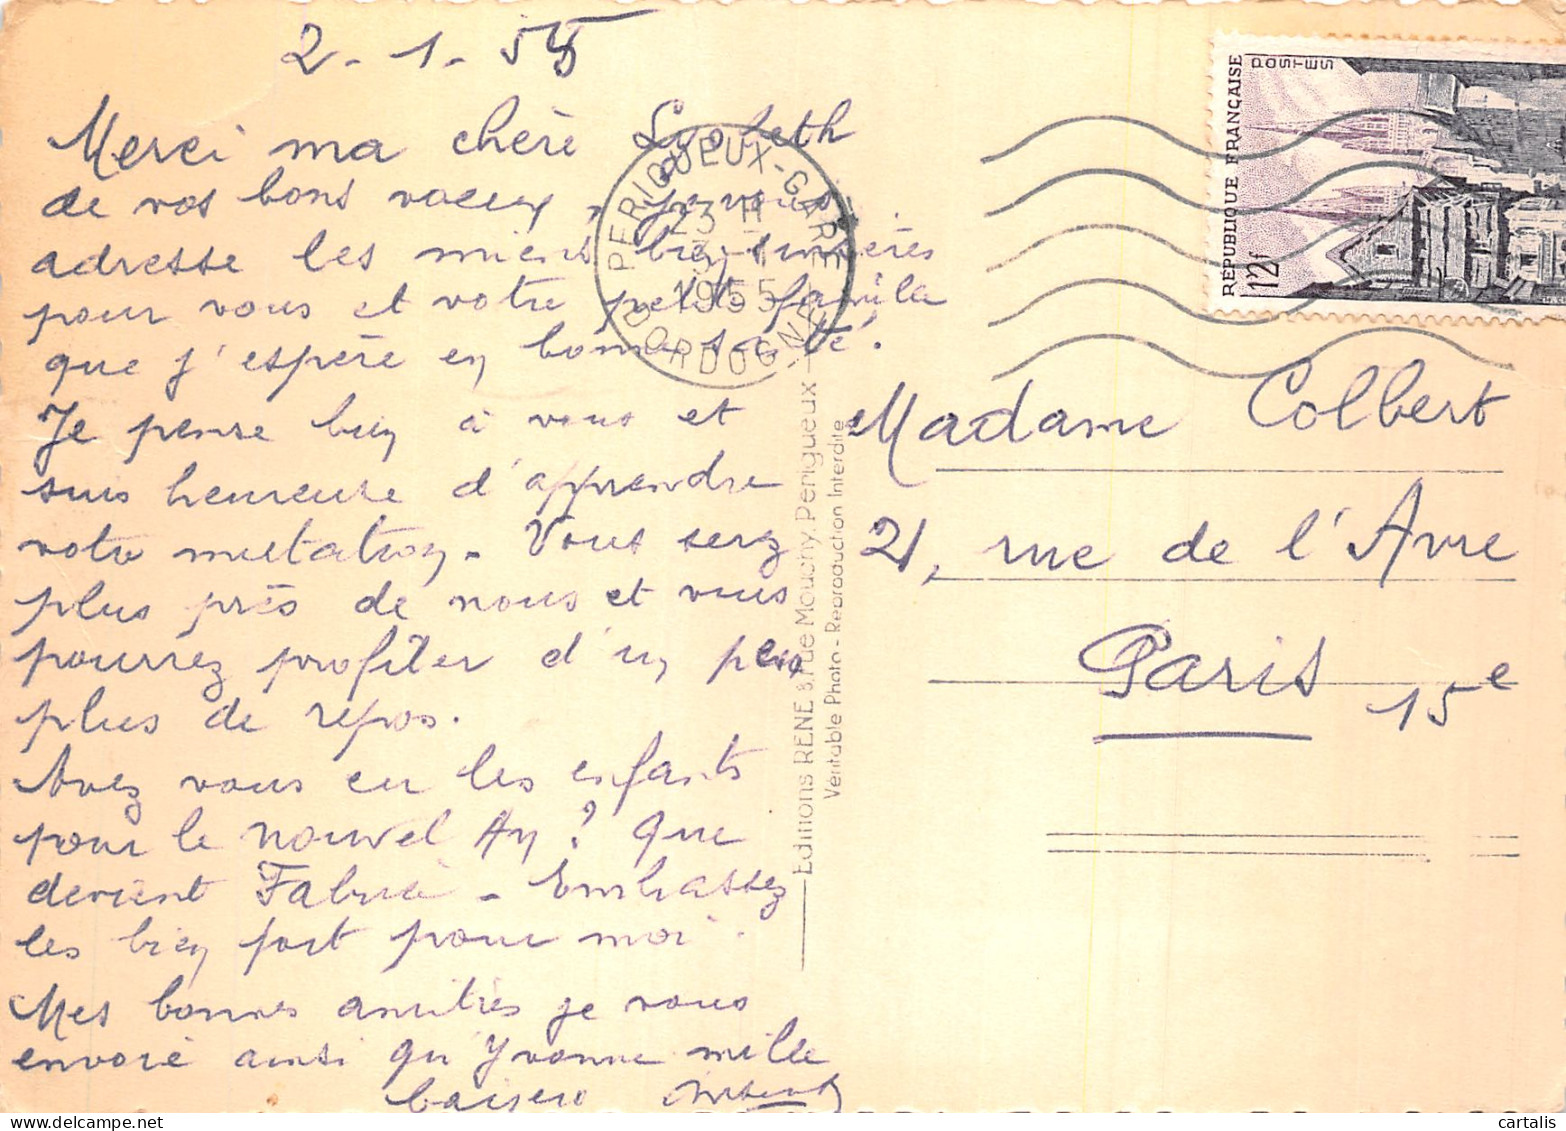 2-1-55
Merci ma chère Lysbeth
de vos bons voeux, je vous
adresse les miens bien sincères
pour vous et votre petite famille
que j'espère en bonne santé.
Je pense bien à vous et
suis heureuse d'apprendre
votre mutation. Vous serez
plus près de nous et vous
pourrez profiter d'un peu
plus de repos.
Avez vous eu les enfants
pour le nouvel An ? Que
devient Fabrice - Embrassez
les bien fort pour moi.
Mes bonnes amitiés je vous
envoie ainsi qu'Yvonne mille
baisers
PERIGUEUX-GARE
23 H
3 - 1
1955
DORDOGNE
REPUBLIQUE FRANÇAISE
POSTES
12f
Madame Colbert
21, rue de l'Avre
Paris 15e
Editions RENE 8, rue Mouchy, Perigueux
Véritable Photo - Reproduction Interdite
cartalis